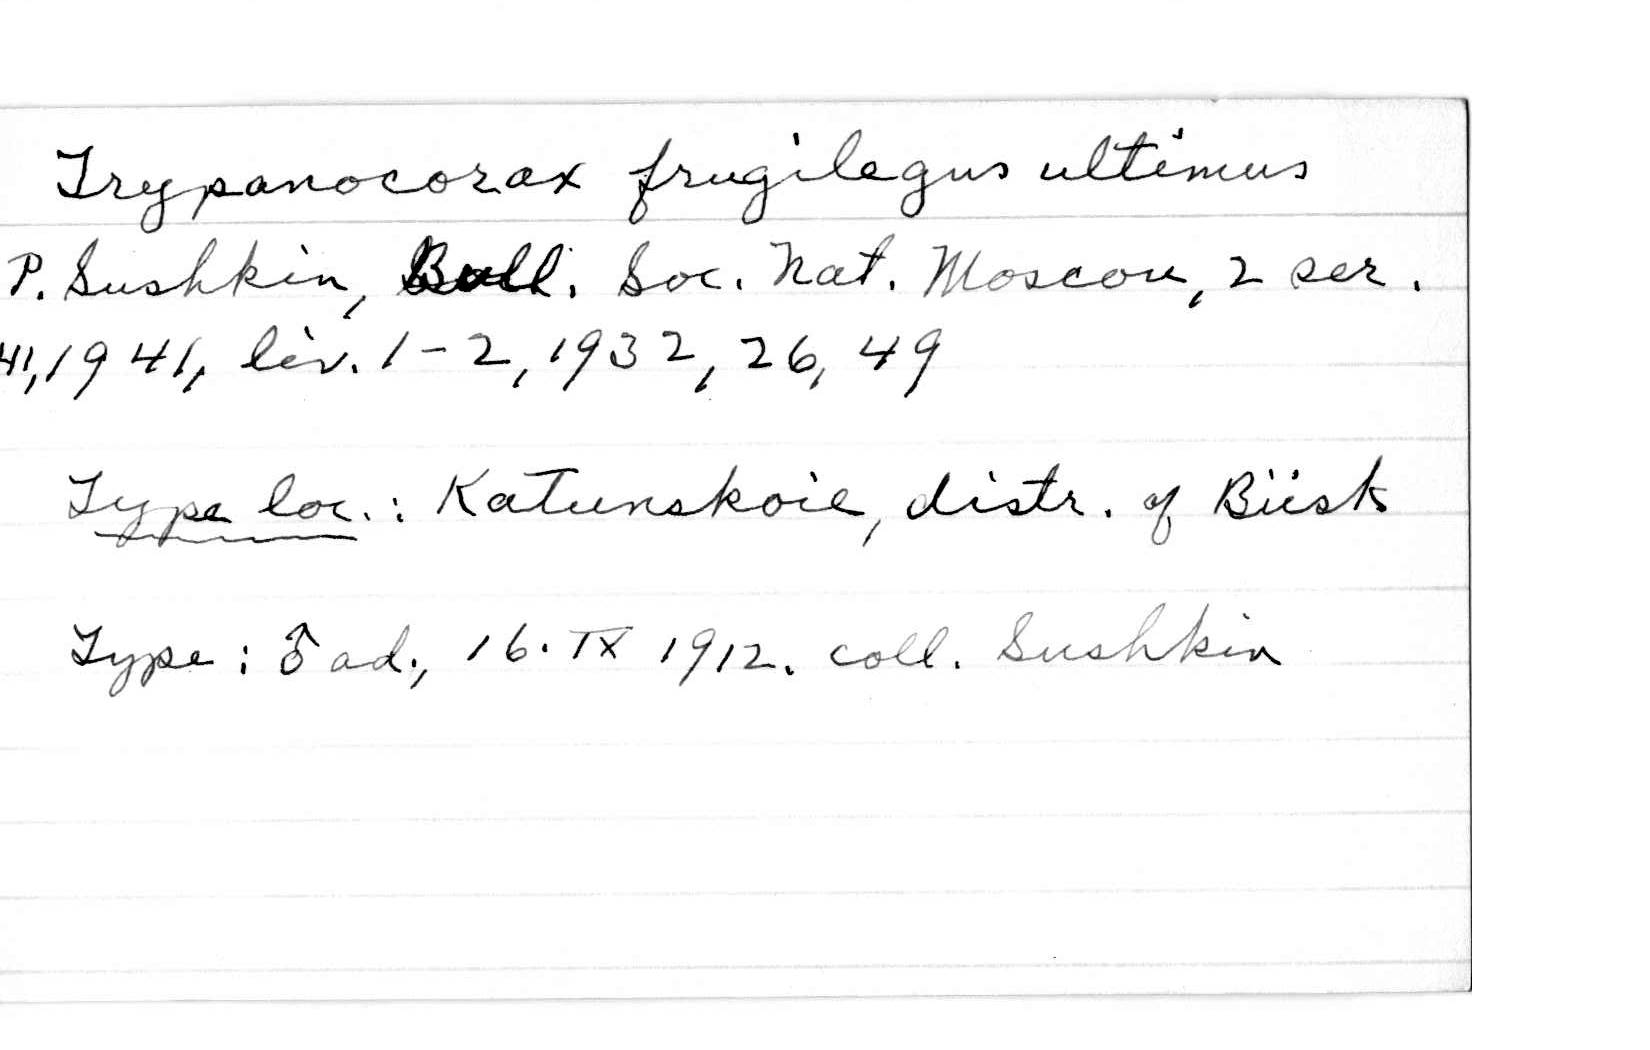 Trypanocorax frugilegus ultimus
P. Sushkin, Bull. Soc. Nat. Moscou, 2 ser.
41, 1941, liv. 1-2, 1932, 26, 49
Type loc.: Katunskoie, distr. of Biisk
Type: ♂ ad., 16. IX 1912. coll. Sushkin